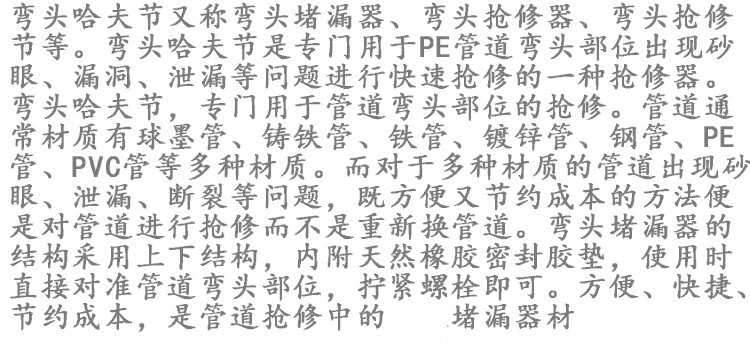 弯头哈夫节又称弯头堵漏器、弯头抢修器、弯头抢修
节等。弯头哈夫节是专门用于PE管道弯头部位出现砂
眼、漏洞、泄漏等问题进行快速抢修的一种抢修器。
弯头哈夫节，专门用于管道弯头部位的抢修。管道通
常材质有球墨管、铸铁管、铁管、镀锌管、钢管、PE
管、PVC管等多种材质。而对于多种材质的管道出现砂
眼、泄漏、断裂等问题，既方便又节约成本的方法便
是对管道进行抢修而不是重新换管道。弯头堵漏器的
结构采用上下结构，内附天然橡胶密封胶垫，使用时
直接对准管道弯头部位，拧紧螺栓即可。方便、快捷、
节约成本，是管道抢修中的 堵漏器材